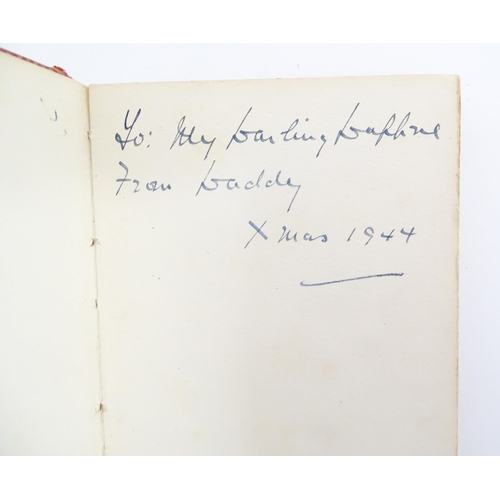 To: My Darling Daphne
From Daddy
X mas 1944